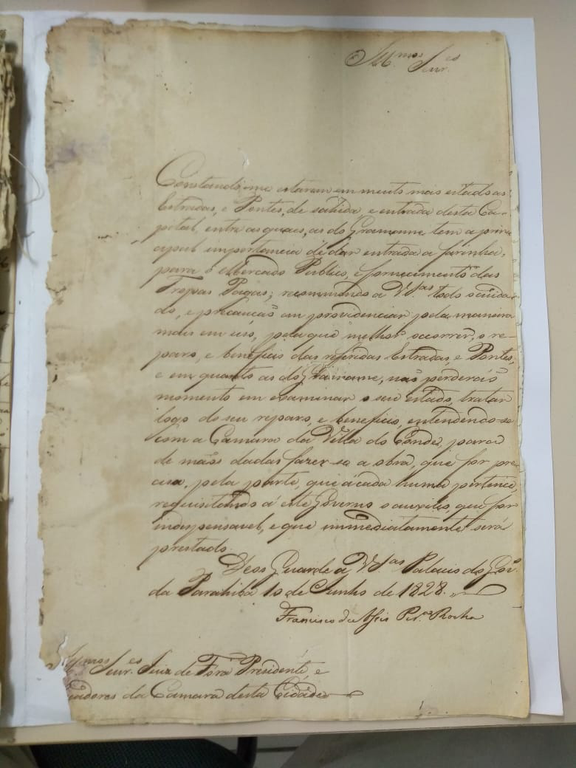 Illmos Senres
Constando-me estarem em muito máo estado as
Estradas, e Pontes, de sahida, e entrada desta Ca-
pital, entre as quaes, as do Gramame tem a prin-
cipal importancia de dar entrada a farinha,
para o Mercado Publico, e fornecimento das
Tropas Pagas; recommendo a VSas todo cuida-
do, e precaução em providenciar pela maneira
mais em uso, pela que melhor occorrer, o re-
paro, e beneficio das referidas Estradas, e Pontes,
e em quanto as do Gramame, não perderáõ
momento em examinar o seu estado, tratar
logo do seu reparo, e beneficio, entendendo-se
com a Camara da Villa do Conde, para
de mãos dadas fazer-se a obra, que for pre-
cisa, pela parte, que a cada huma pertence
requisitando a este Governo o auxilio, que for
indispensavel, e que immediatamente será
prestado.
Deos Guarde a VSas Palacio do Govo
da Parahiba 10 de Junho de 1828.
Francisco de Assis Pera Rocha
Senres Juiz de Fóra Presidente, e
eadores da Camara desta Cidade